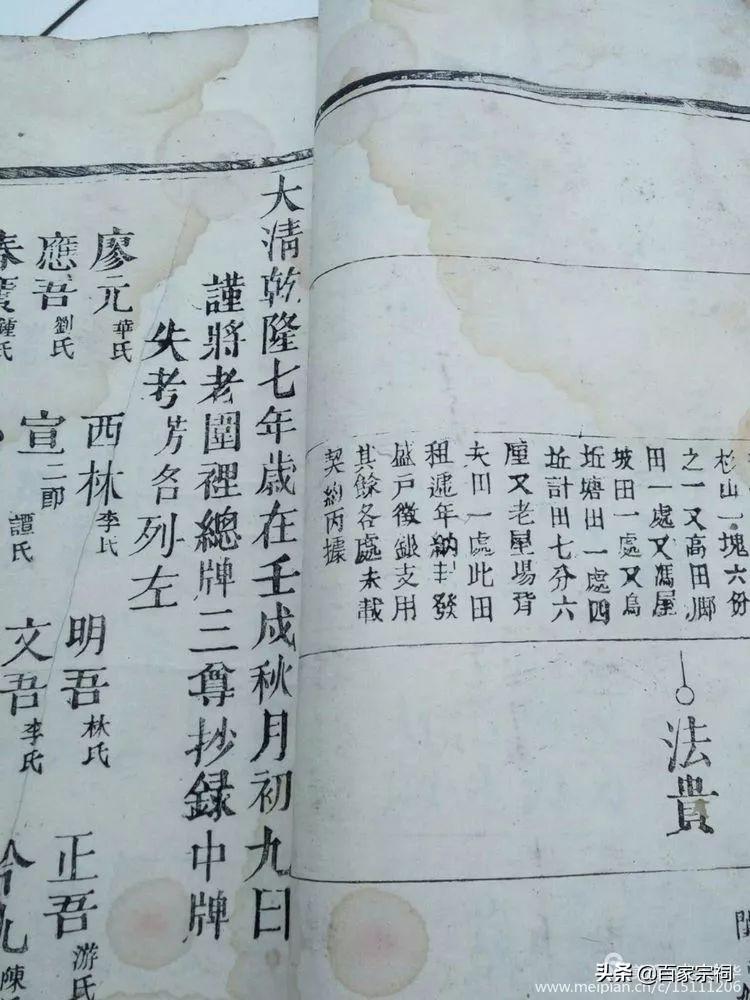 杉山一塊六份
之一又高田𡋾
田一處又馮屋
坡田一處又烏
坵塘田一處四
坵計田七分六
厘又老屋場背
夫田一處此田
租遞年納丰發
盛戶徵銀支用
其餘各處未載
契約丙據
法貴
大清乾隆七年歲在壬戌秋月初九日
謹將老圍裡總牌三尊抄録中牌
失考芳各列左
廖元 華氏
西林 李氏
明吾 林氏
正吾 游氏
應吾 劉氏
宣二郎 譚氏
文吾 李氏
鍾氏
头条 @百家宗祠
www.meipian.cn/c/15111206